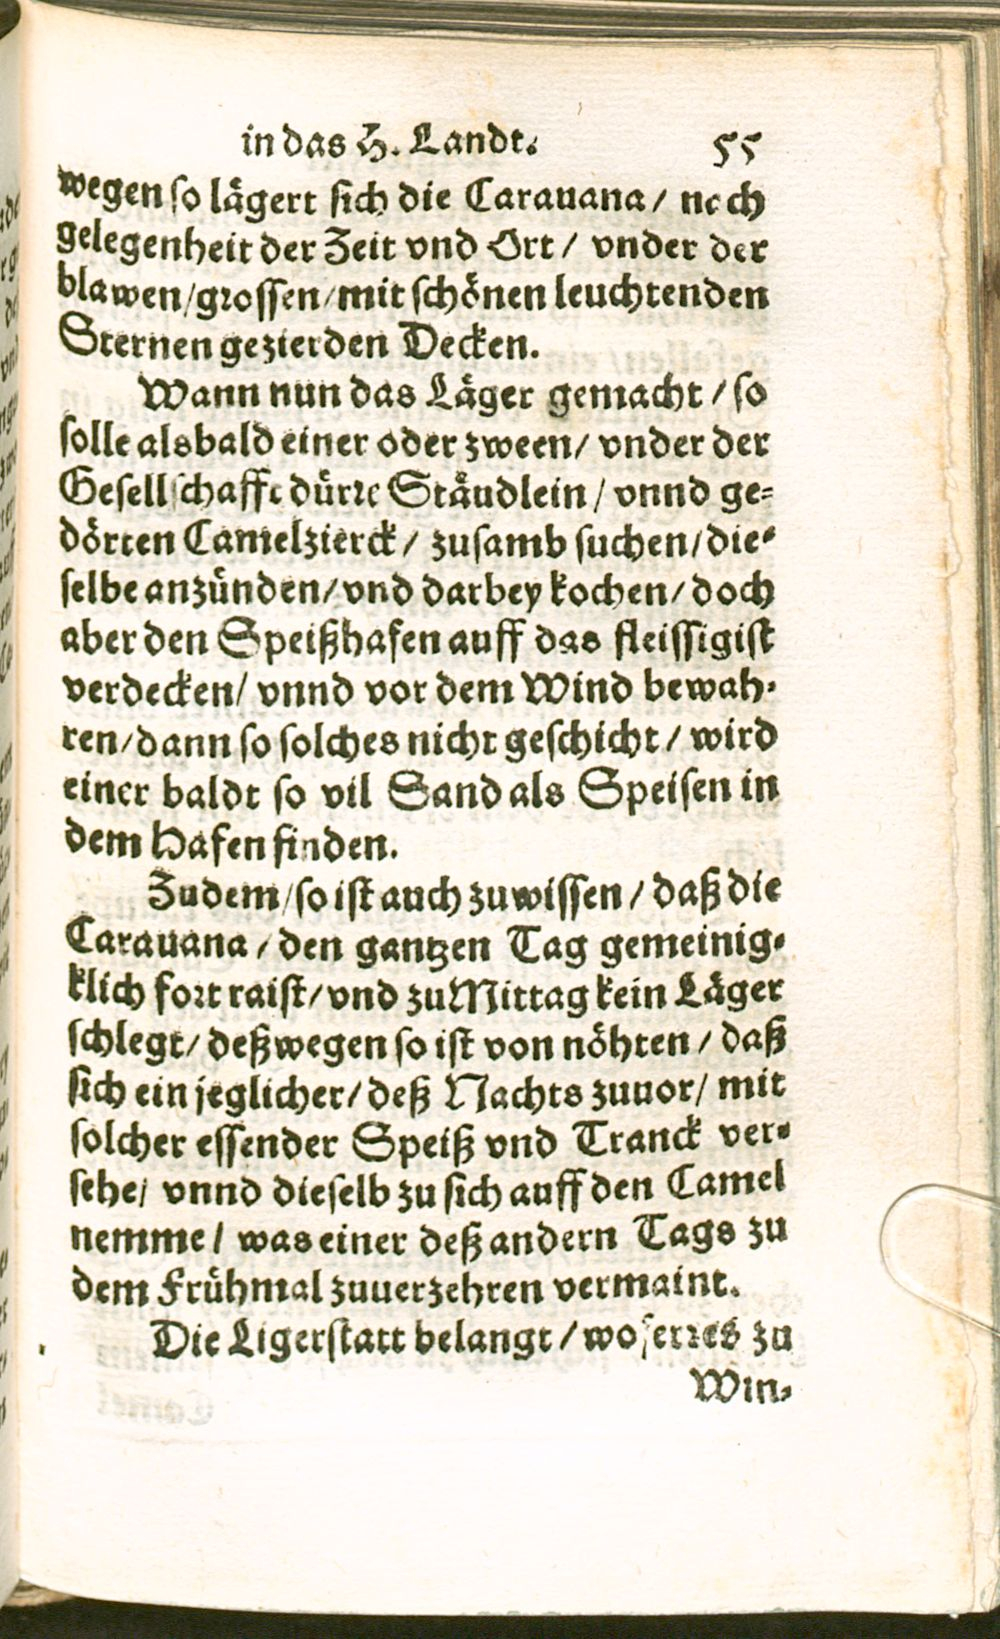 in das H. Landt. 55
wegen so lägert sich die Carauana / nach
gelegenheit der Zeit vnd Ort / vnder der
blawen / grossen / mit schönen leuchtenden
Sternen gezierden Decken.
Wann nun das Läger gemacht / so
solle alsbald einer oder zween / vnder der
Gesellschafft dürre Ståudlein / vnnd ge-
dörten Camelzierck / zusamb suchen / die-
selbe anzünden / vnd darbey kochen / doch
aber den Speißhafen auff das fleissigist
verdecken / vnnd vor dem Wind bewah-
ren / dann so solches nicht geschicht / wird
einer baldt so vil Sand als Speisen in
dem Hafen finden.
Zudem / so ist auch zuwissen / daß die
Carauana / den gantzen Tag gemeinig-
klich fort raist / vnd zu Mittag kein Läger
schlegt / deßwegen so ist von nöhten / daß
sich ein jeglicher / deß Nachts zuuor / mit
solcher essender Speiß vnd Tranck ver-
sehe / vnnd dieselb zu sich auff den Camel
nemme / was einer deß andern Tags zu
dem Frühmal zuuerzehren vermaint.
Die Ligerstatt belangt / woferres zu
Win-